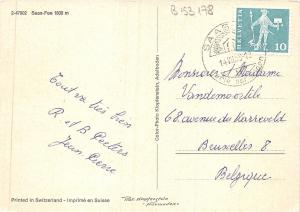 2-47802 Saas-Fee 1800 m
B 153 178
HELVETIA
10
SAAS
Tout va très bien
R et B Peeters
Jean Pierre
Color-Photo Klopfenstein, Adelboden
Monsieur et Madame
Vandemoortele
68 avenue du Karreveld
Bruxelles 8
Belgique
Printed in Switzerland - Imprimé en Suisse